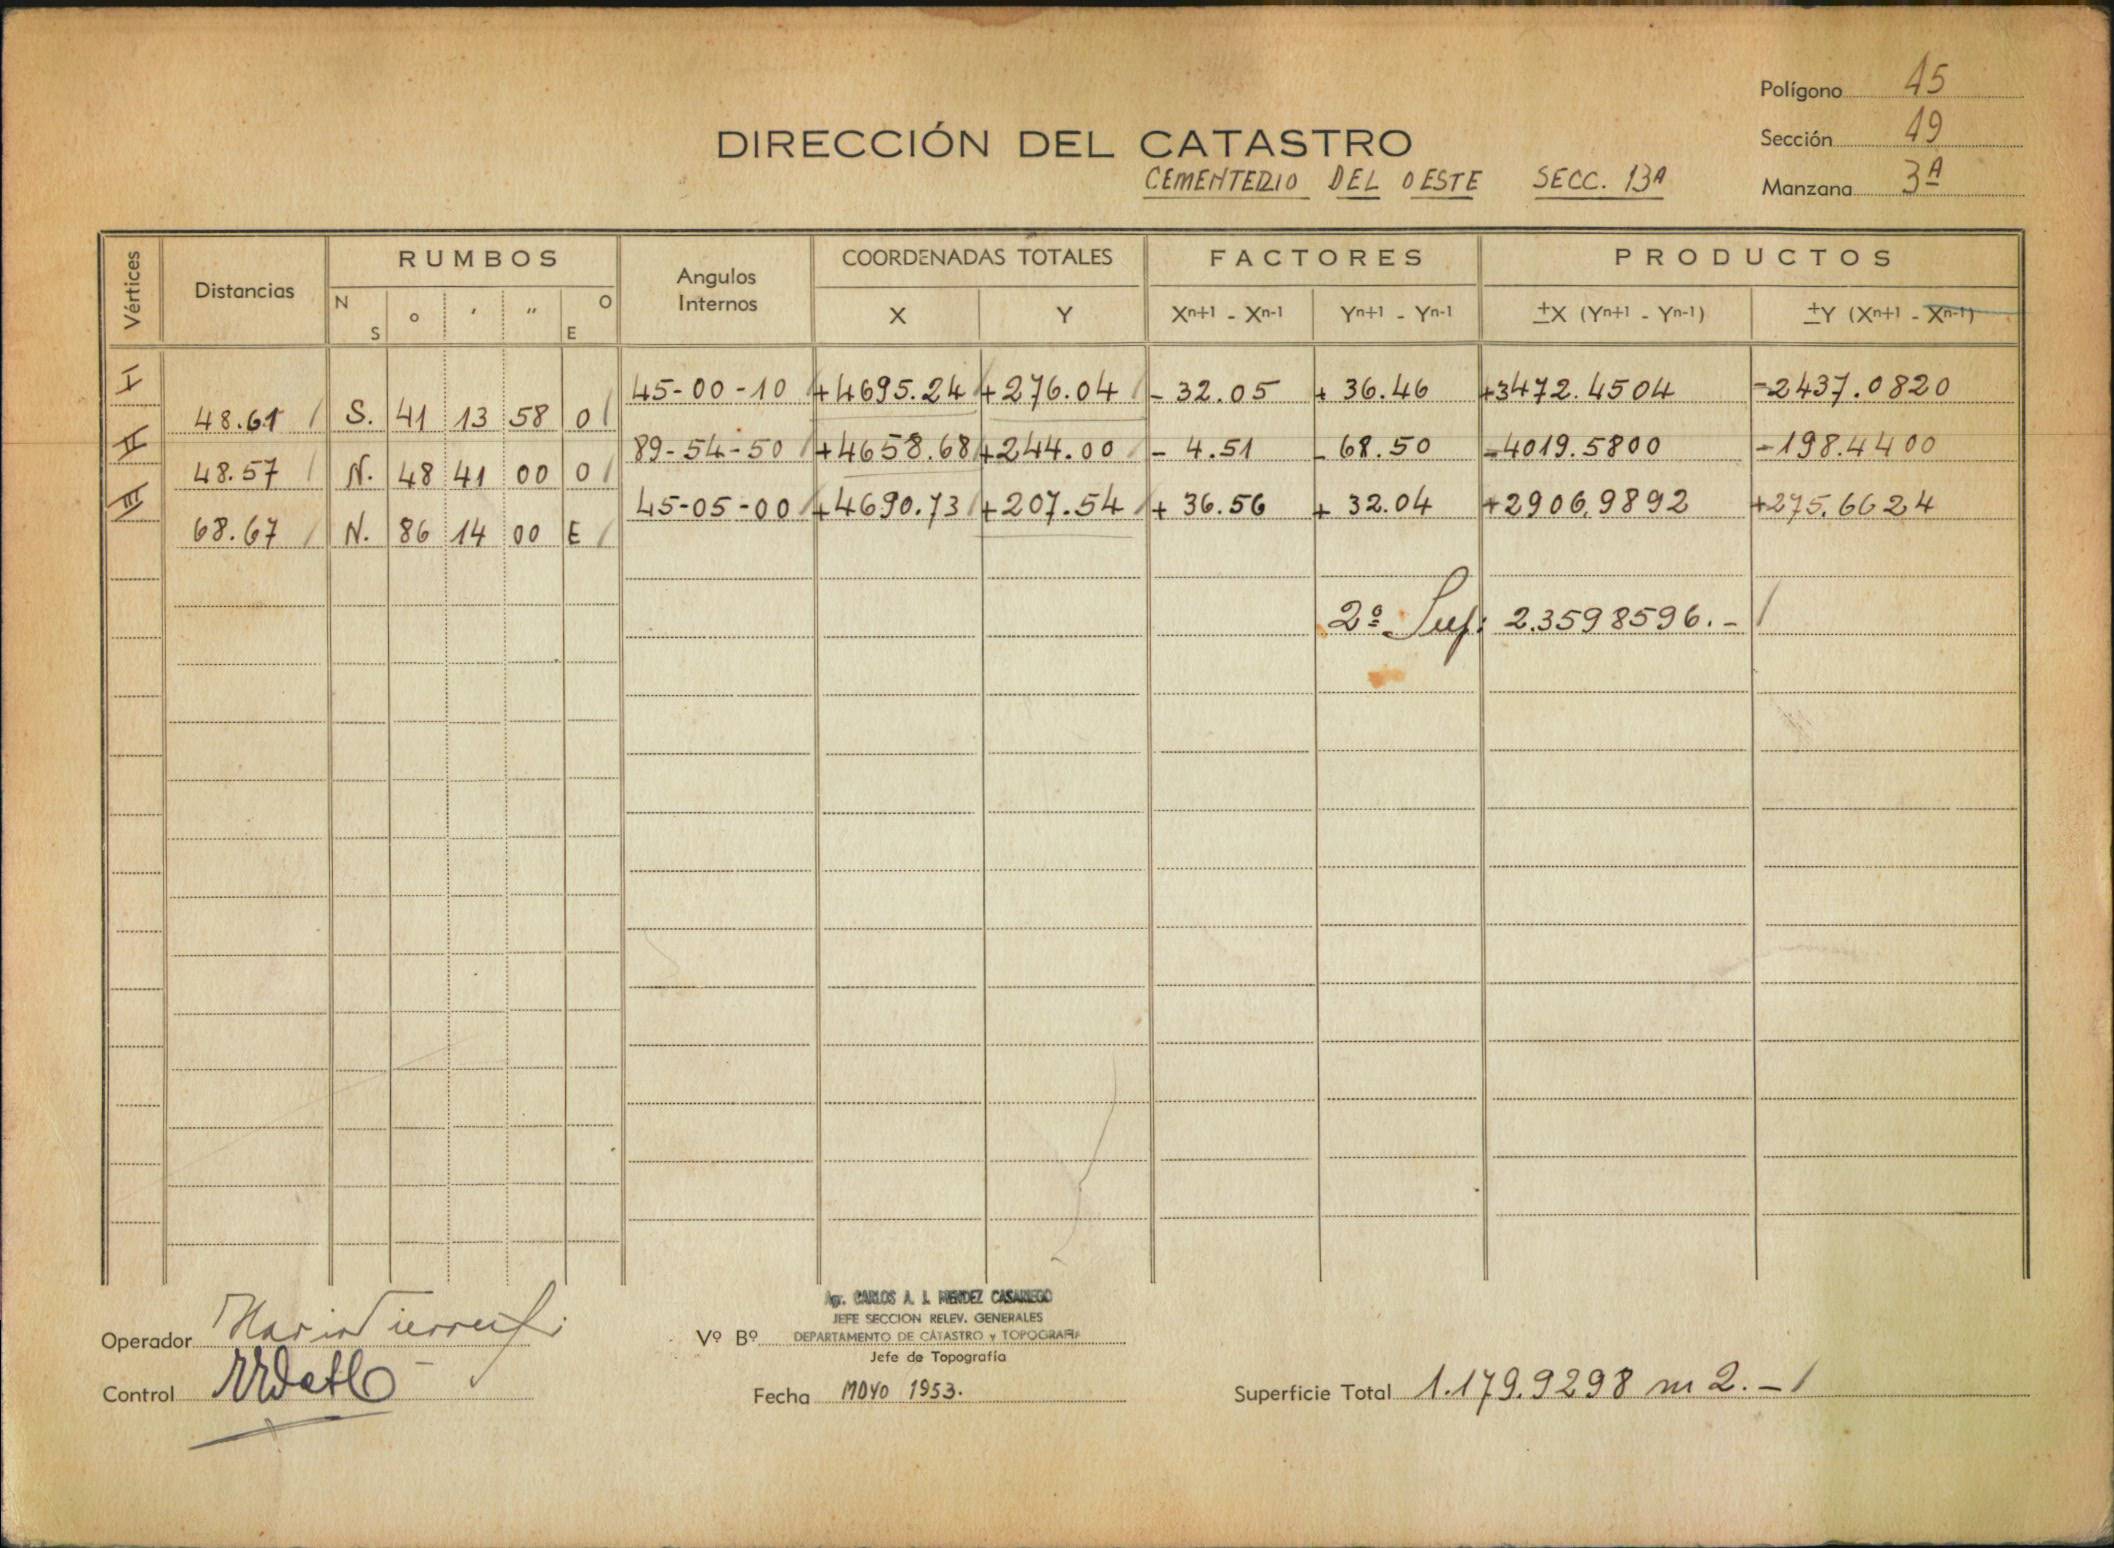 Polígono 45
Sección 19
Manzana 3A
DIRECCIÓN DEL CATASTRO
CEMENTERIO DEL OESTE SECC. 13A
Vértices Distancias RUMBOS Angulos Internos COORDENADAS TOTALES FACTORES PRODUCTOS
N S o ' " O E X Y Xn+1 - Xn-1 Yn+1 - Yn-1 ±X (Yn+1 - Yn-1) ±Y (Xn+1 - Xn-1)
I 45-00-10 +4695.24 +276.04 - 32.05 + 36.46 +3472.4504 -2437.0820
48.61 S. 41 13 58 O
II 89-54-50 +4658.68 +244.00 - 4.51 - 68.50 -4019.5800 -198.4400
48.57 N. 48 41 00 O
III 45-05-00 +4690.73 +207.54 + 36.56 + 32.04 +2906.9892 +275.6624
68.67 N. 86 14 00 E
2º Sup: 2.3598596.-
Operador
Control
Vº Bº
Agr. CARLOS A. J. MENDEZ CASARIEGO
JEFE SECCION RELEV. GENERALES
DEPARTAMENTO DE CATASTRO y TOPOGRAFIA
Jefe de Topografía
Fecha MAYO 1953.
Superficie Total 1.179.9298 m2.-